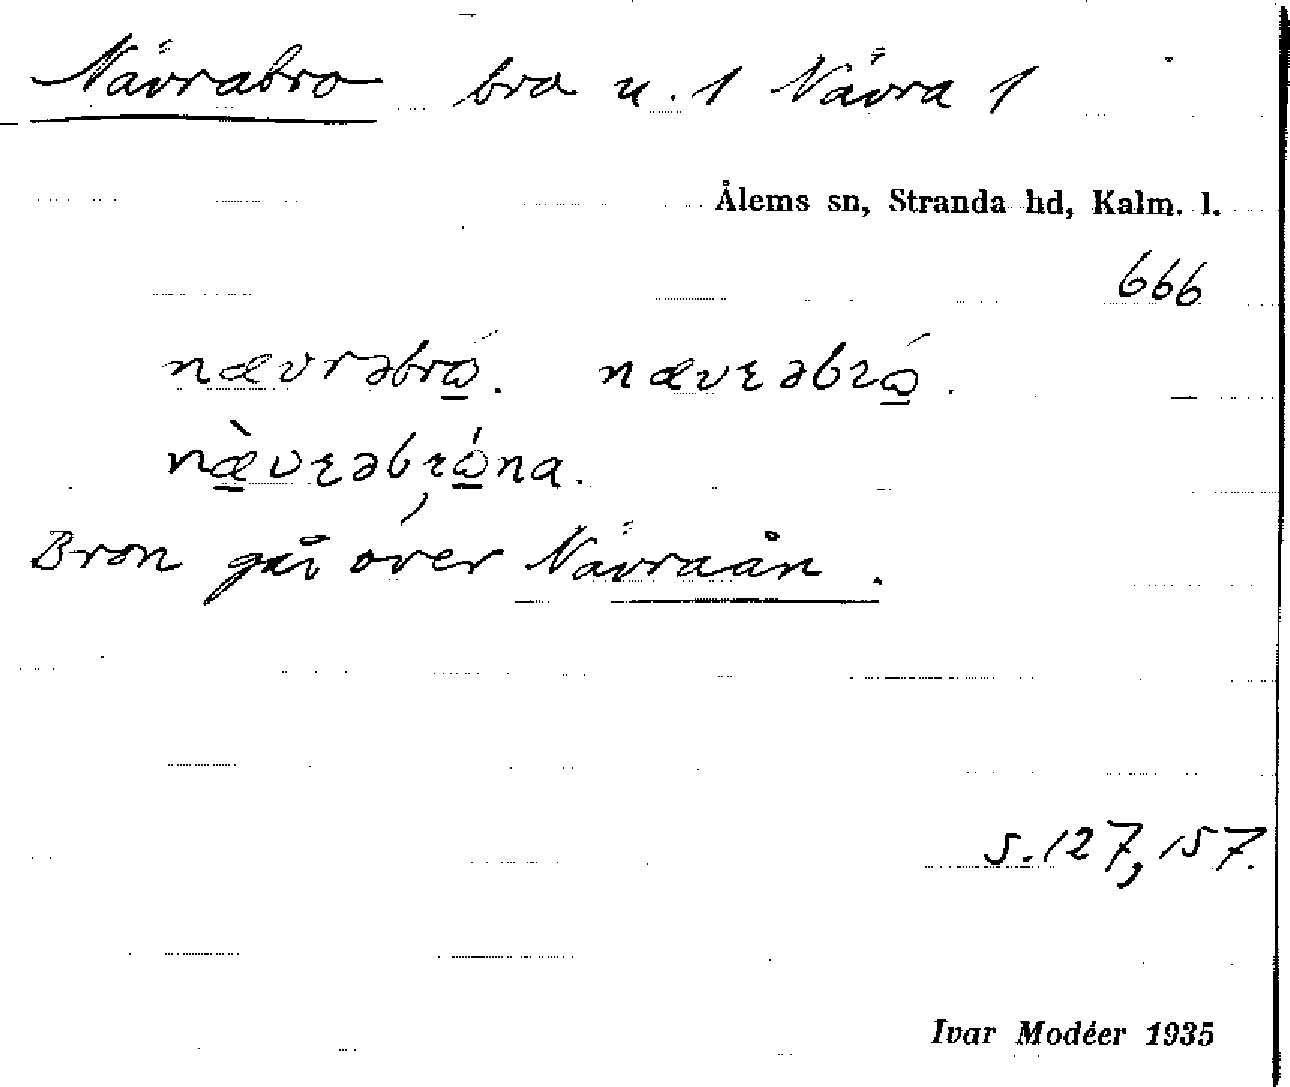 Nävrabro bro n. 1 Nävra 1
Ålems sn, Stranda hd, Kalm. l.
666
nævrəbrώ̲. nævꞛəbrώ̲.
næ̲̀vꞛəbꞛώ̲na.
Bron går över Nävraån.
s. 127, 157.
Ivar Modéer 1935